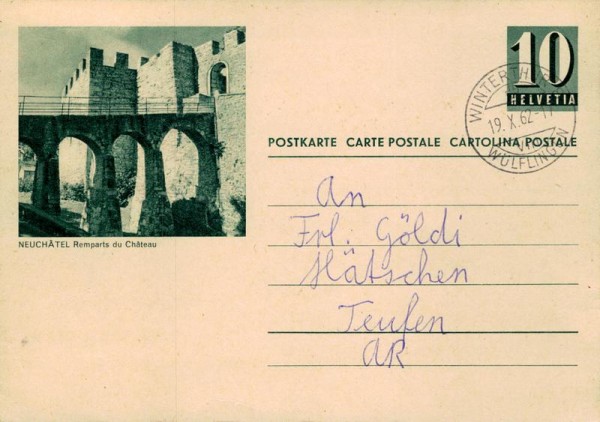 10
HELVETIA
WINTERTHUR
19. X. 62-17
WÜLFLINGEN
POSTKARTE CARTE POSTALE CARTOLINA POSTALE
An
Frl. Göldi
Hätschen
Teufen
AR
NEUCHÂTEL Remparts du Château